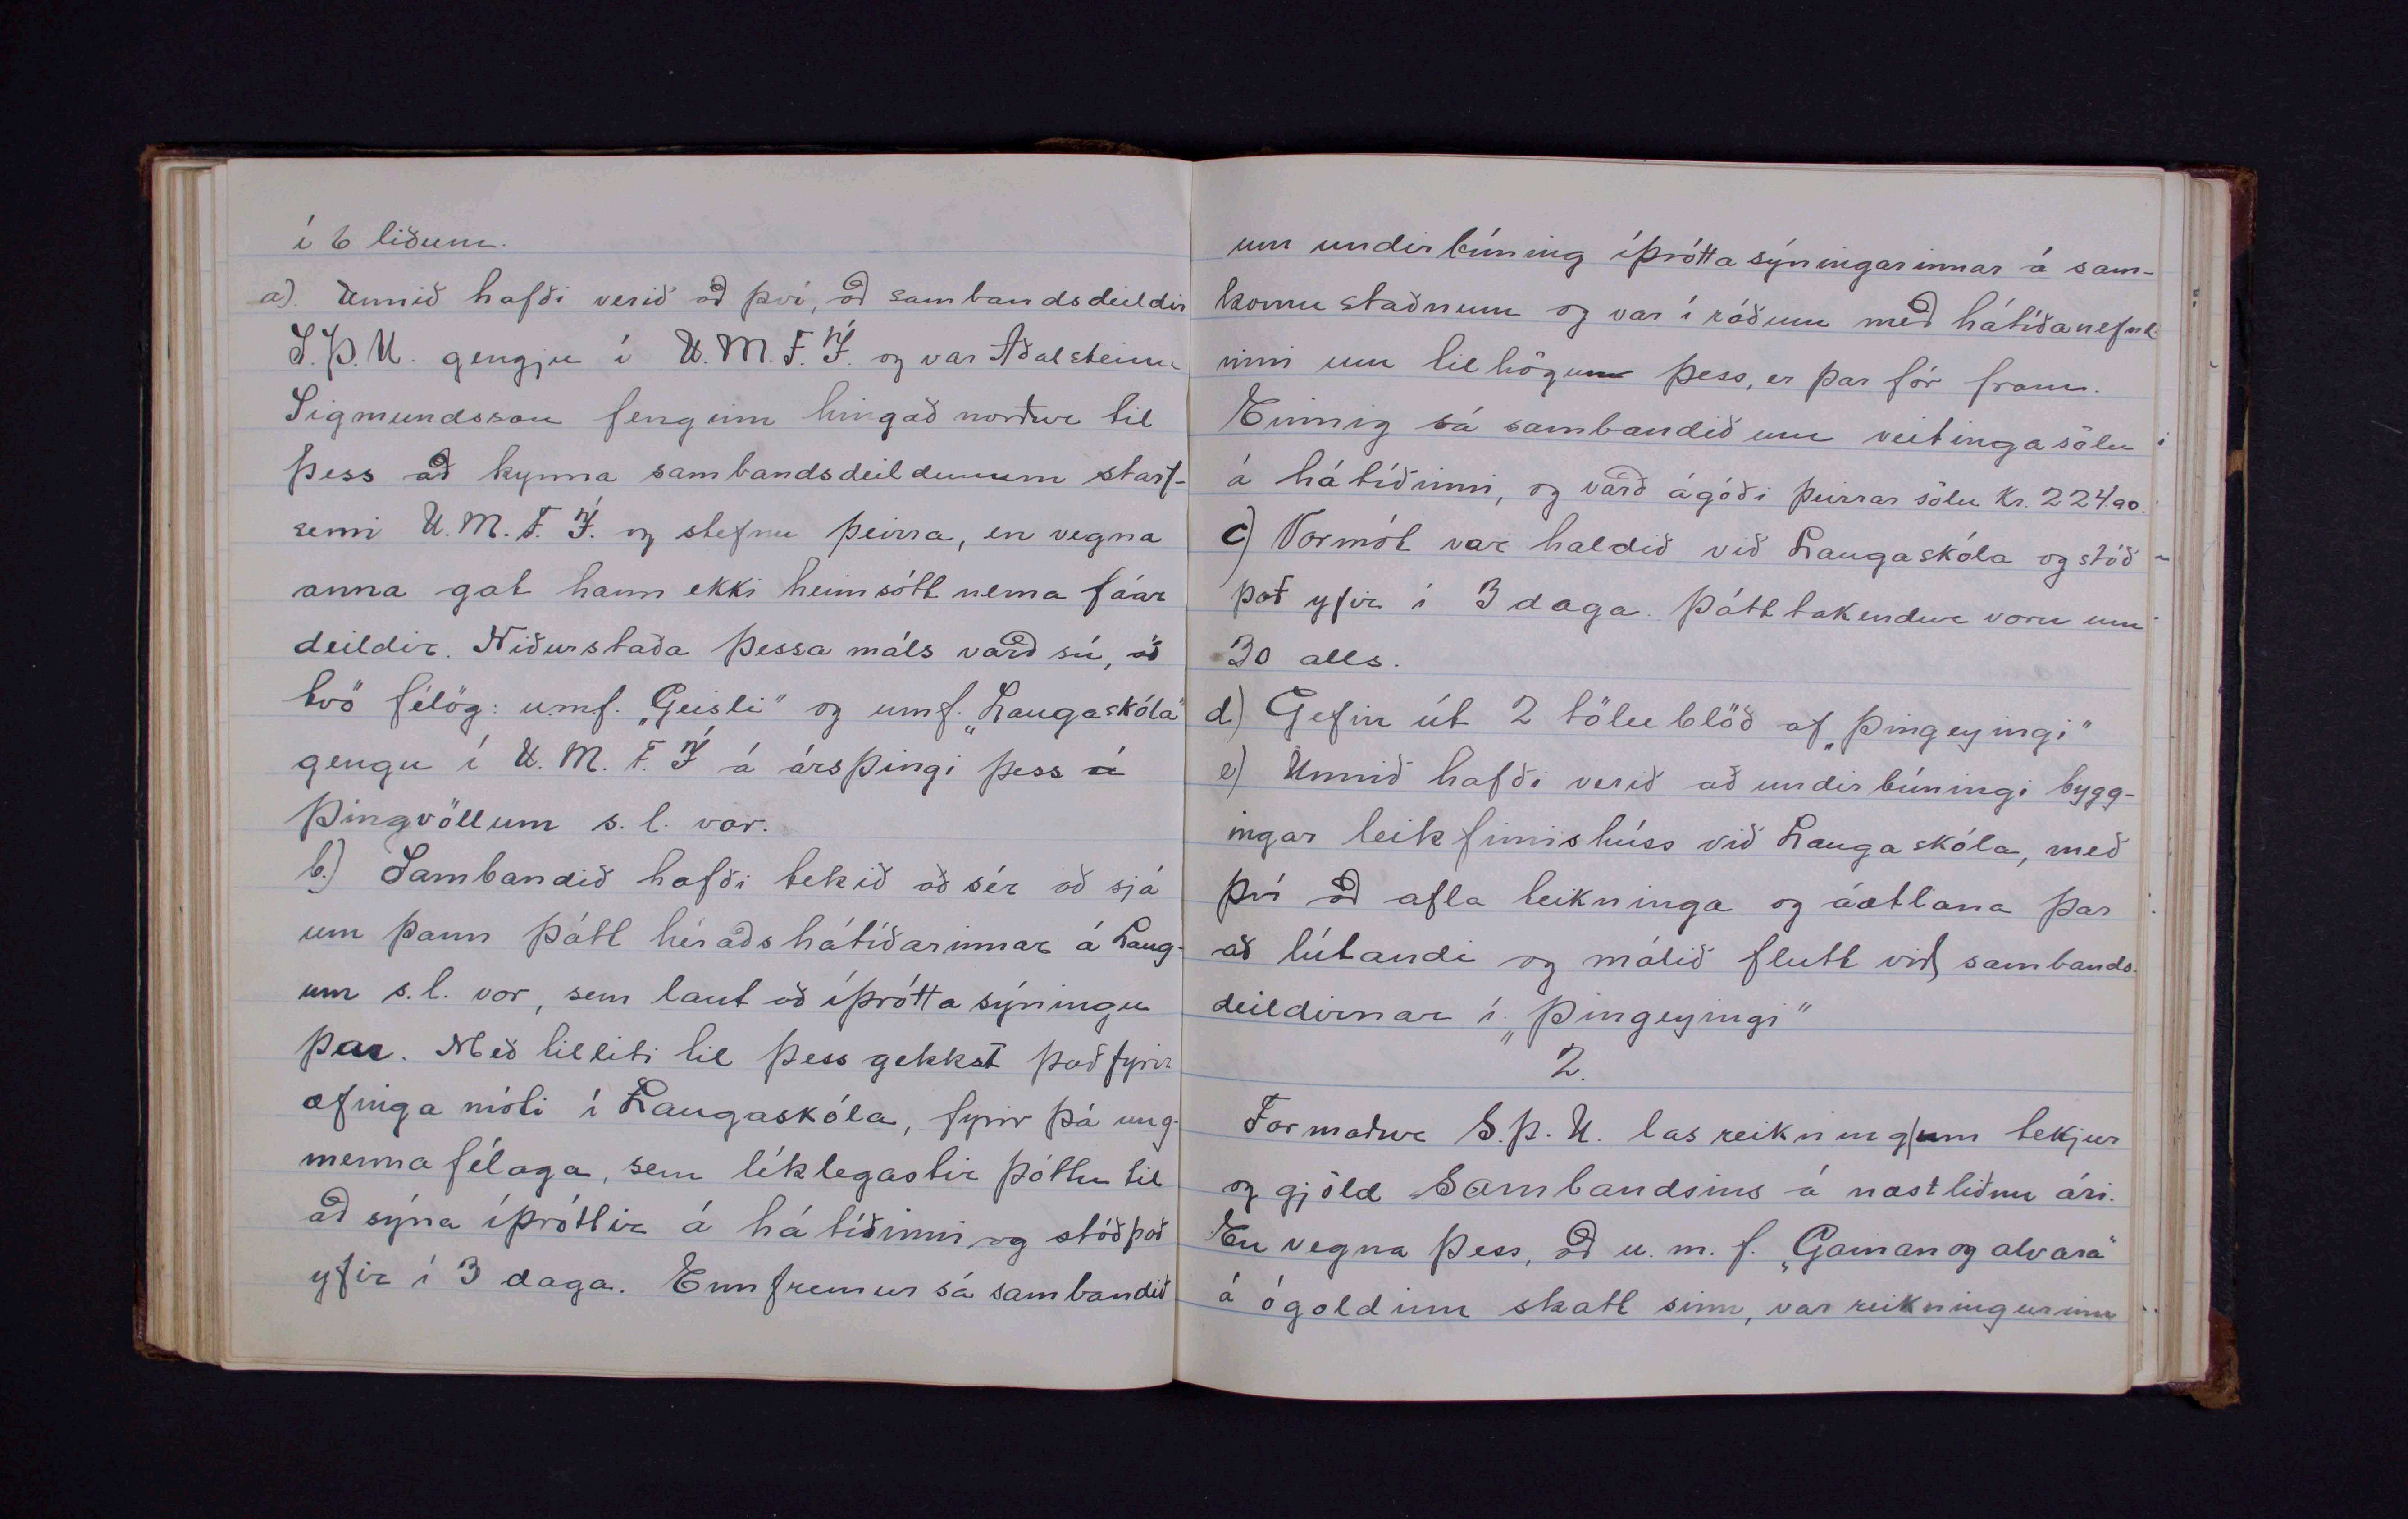 í 6 liðum.
a). Unnið hafði verið að því, að sambandsdeildir
S.Þ.U. gengju í U.M.F.Í. og var Aðalsteinn
Sigmundsson fenginn hingað norður til
þess að kynna sambandsdeildunum starf-
semi U.M.F.Í. og stefnu þeirra, en vegna
anna gat hann ekki heimsótt nema fáar
deildir. Niðurstaða þessa máls varð sú, að
tvö félög: u.m.f. „Geisli" og umf. „Laugaskóla"
gengu í U.M.F.Í á ársþingi þess á
Þingvöllum s.l. vor.
b.) Sambandið hafði tekið að sér að sjá
um þann þátt héraðshátíðarinnar á Laug-
um s.l. vor, sem laut að íþróttasýningu
þar. Með tilliti til þess gekkst það fyrir
æfinga móti í Laugaskóla, fyrir þá ung-
mennafélaga, sem líklegastir þóttu til
að sýna íþróttir á hátíðinni og stóð það
yfir í 3 daga. Ennfremur sá sambandið
um undirbúning íþróttasýningarinnar á sam-
komustaðnum og var í ráðum með hátíðanefnd
inni um tilhögun þess, er þar fór fram.
Einnig sá sambandið um veitingasölu
á hátíðinni, og varð ágóði þeirrar sölu Kr. 224.90.
c) Vormót var haldið við Laugaskóla og stóð
það yfir í 3 daga. Þátttakendur voru um
30 alls.
d.) Gefin út 2 tölublöð af „Þingeyingi"
e) Unnið hafði verið að undirbúningi bygg-
ingar leikfimishúss við Laugaskóla, með
því að afla teikninga og áætlana þar
að lútandi og málið flutt við sambands-
deildirnar í „Þingeyingi"
2.
Formaður S.Þ.U. las reikning um tekjur
og gjöld Sambandsins á næstliðnu ári.
En vegna þess, að u.m.f. „Gaman og alvara"
á ógoldinn skatt sinn, var reikningurinn